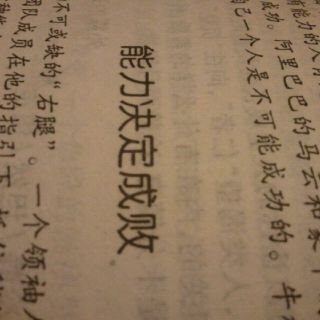 有能力的人有
成功。阿里巴巴的马云和蒙牛
自己一个人是不可能成功的。牛
能力决定成败
不可或缺的“右腿”。一个领袖人
团队成员在他的指引下